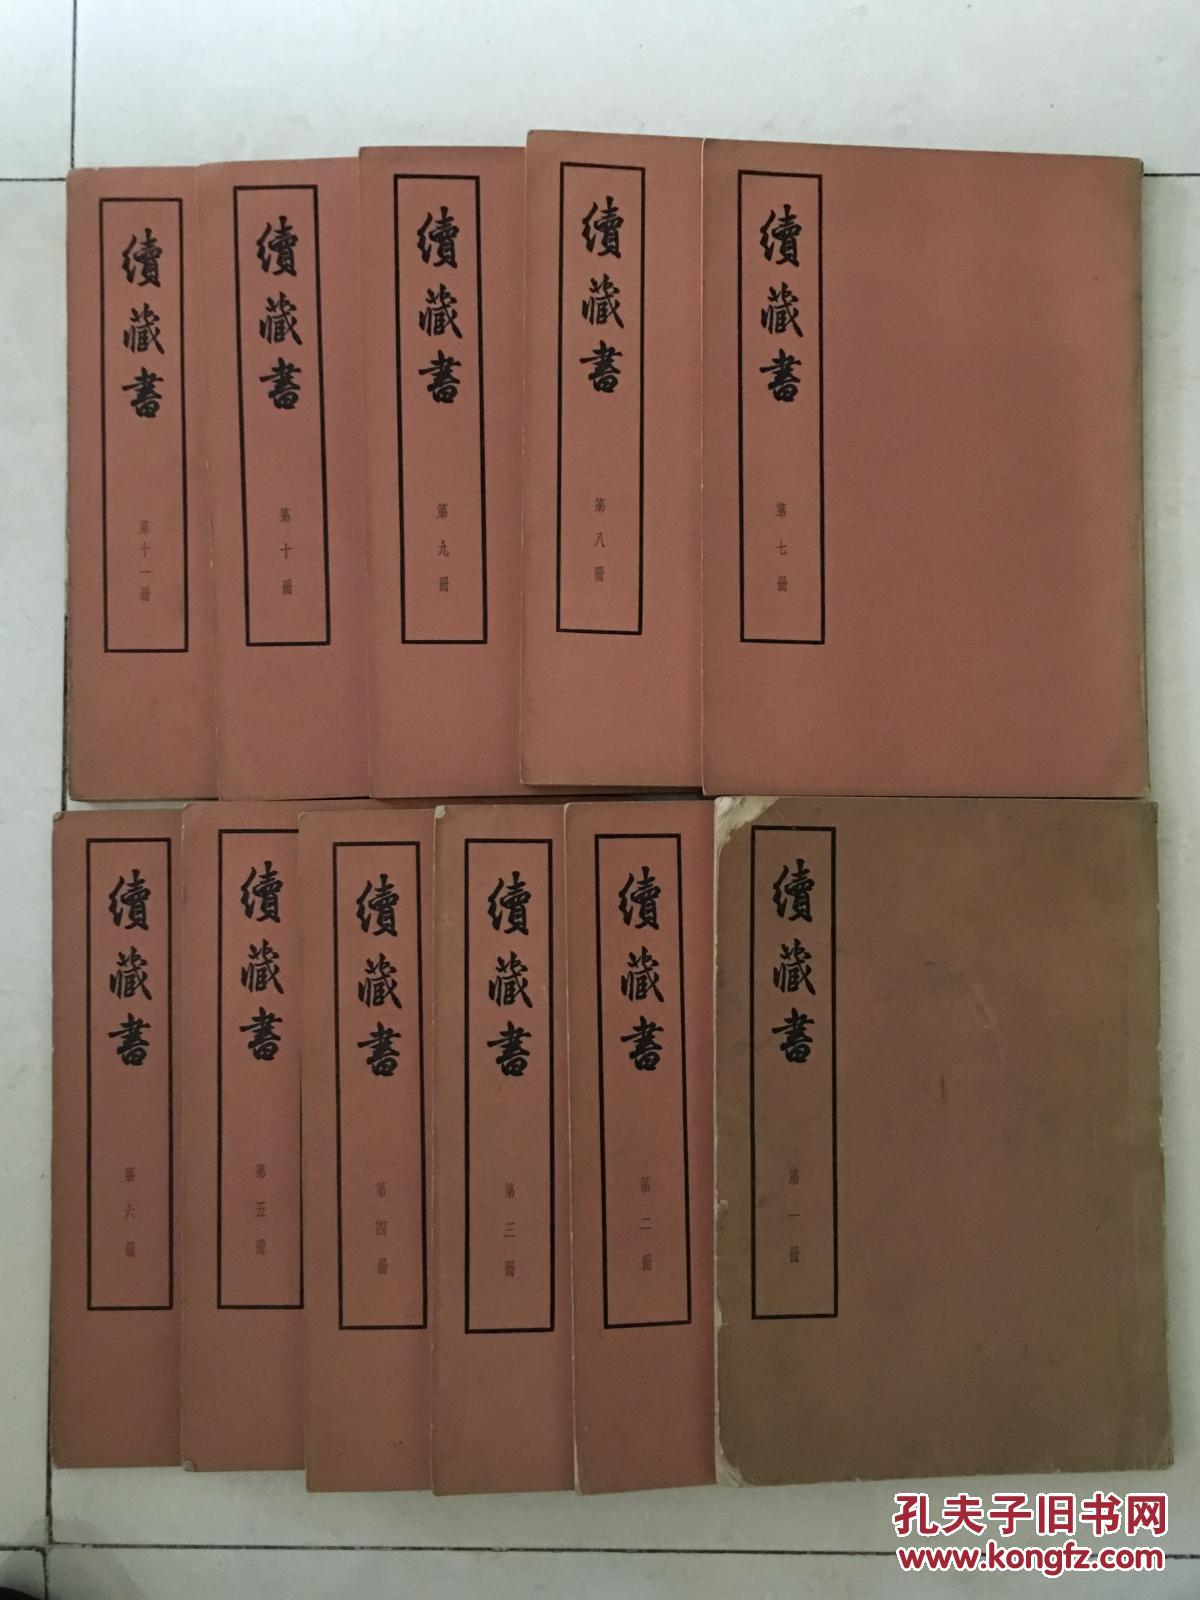 續藏書
第十一冊
續藏書
第十冊
續藏書
第九冊
續藏書
第八冊
續藏書
第七冊
續藏書
第六冊
續藏書
第五冊
續藏書
第四冊
續藏書
第三冊
續藏書
第二冊
續藏書
第一冊
孔夫子旧书网
www.kongfz.com